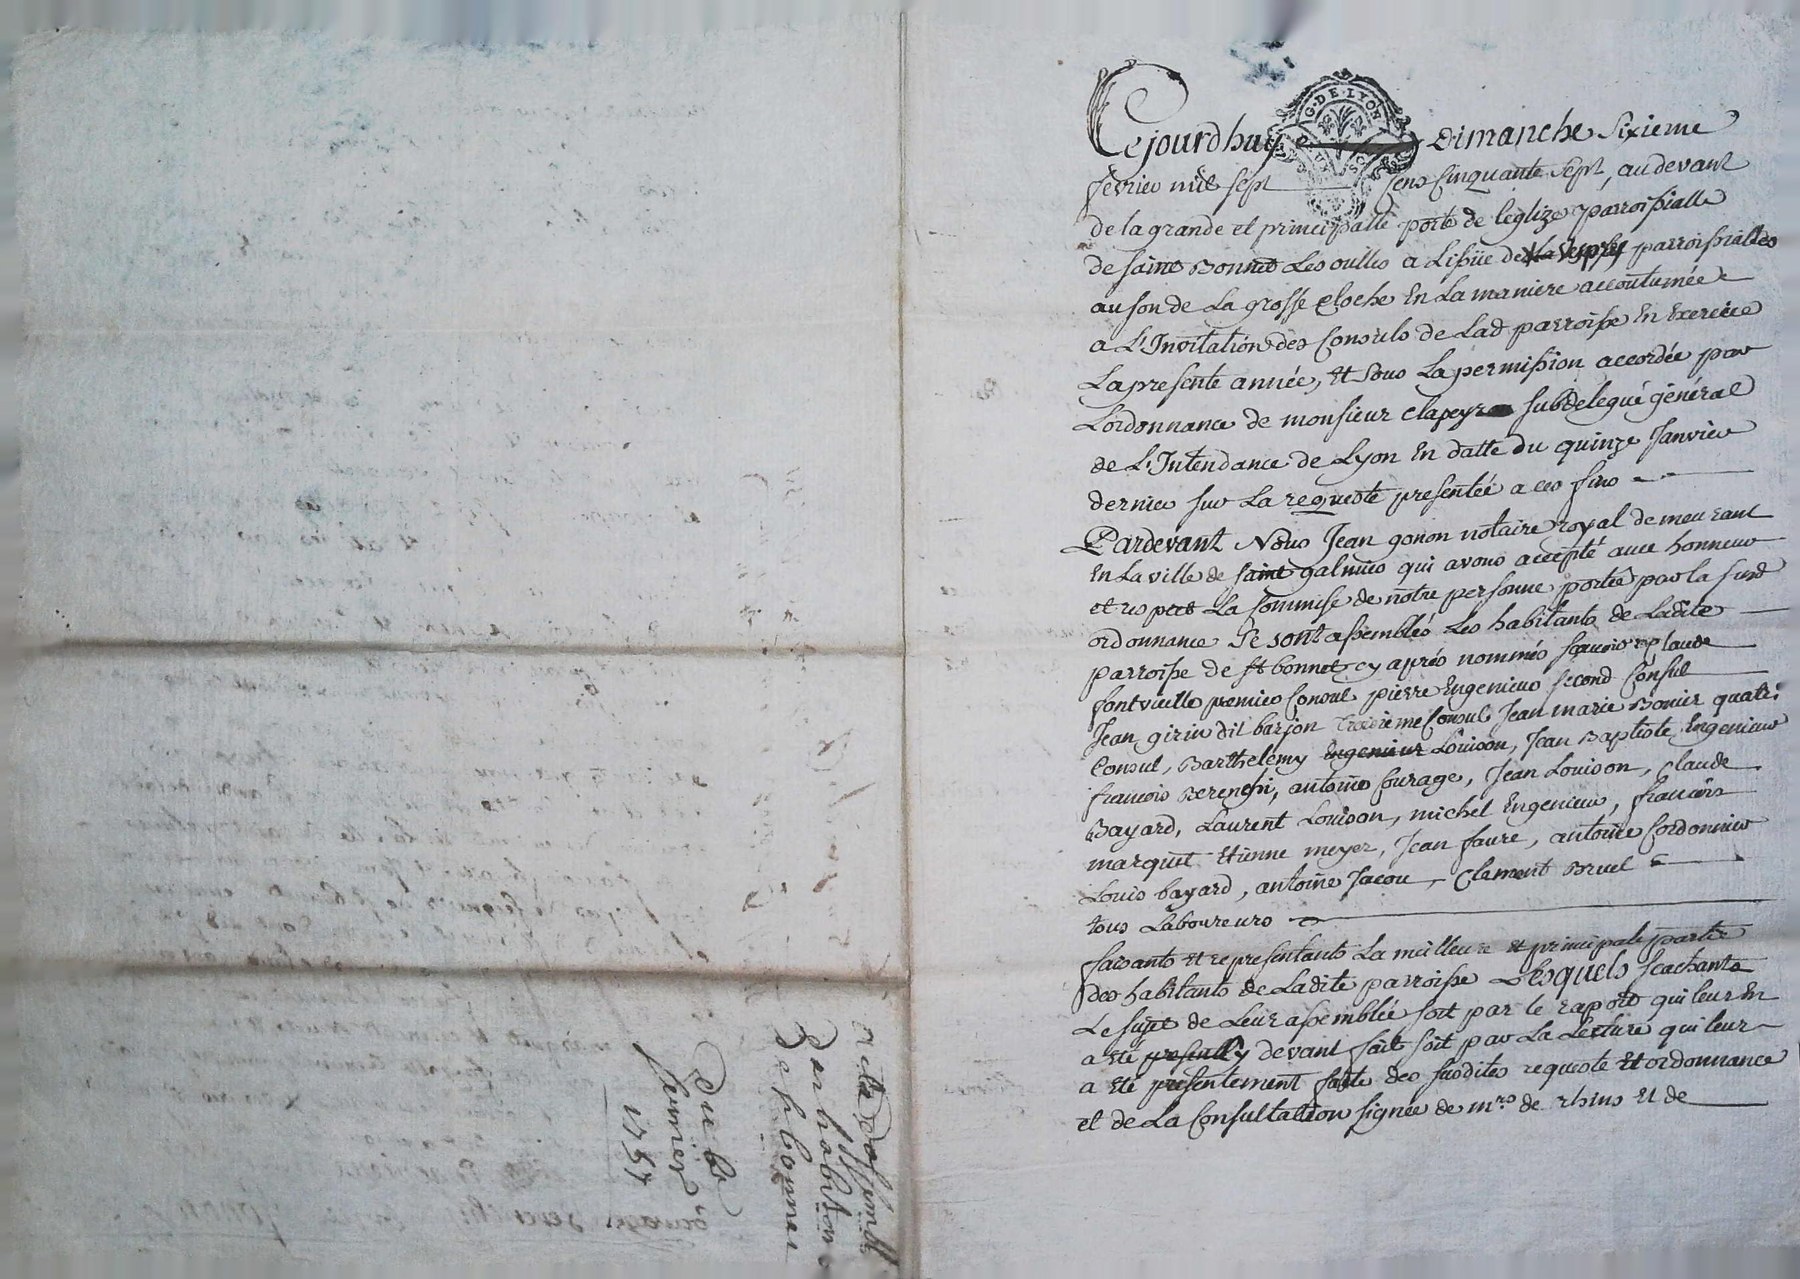 G. DE LYON
Cejourdhuy Dimanche Sixieme
fevrier mil sept Cens Cinquante Sept, au devant
de la grande et principalle porte de leglize parroissialle
de saint Bonnet Les oulles a Lissüe de Vespres parroissialles
au son de La grosse Cloche En La maniere accoutumée
a L'Invitation des Consuls de Lad parroisse En Exercice
La presente année, Et sous La permission accordée par
Lordonnance de monsieur Clapeyron subdelegué général
de L'Intendance de Lyon En datte du quinze Janvier
dernier sur La requeste presentée a ces fins
Pardevant Nous Jean gonon notaire royal demeurant
En La ville de saint galmier qui avons accepté avec honneur
et respect La Commise de notre personne portée par la susd
ordonnance Se sont assemblés Les habitants de Ladite
parroisse de st bonnet cy aprés nommés sçavoir Claude
fontvieille premier Consul pierre Engenieur second Consul
Jean girin dit barjon troizieme Consul Jean marie Bonier quatr:
Consul, Barthelemy Engenieur Louison, Jean Baptiste Engenieur
francois Berenchi, antoine Courage, Jean Louison, Claude
Bayard, Laurent Louison, michel Engenieur, francois
marquet Etienne meyer, Jean faure, antoine Cordonnier
Louis bayard, antoine Jacou, Clement Bruel
tous Laboureurs
faisants et representants La meilleure et principale partie
des habitants de Ladite parroisse Lesquels scachants
Le sujet de Leur assemblée soit par le raport qui leur En
a eté cy devant fait soit par La Lecture qui leur
a eté presentement faite des susdites requeste Et ordonnance
et de La Consultation signée de mrs de rhins Et de
acte dassemblé
des habitans
de st bonnet
Du 6e
fevrier
1757